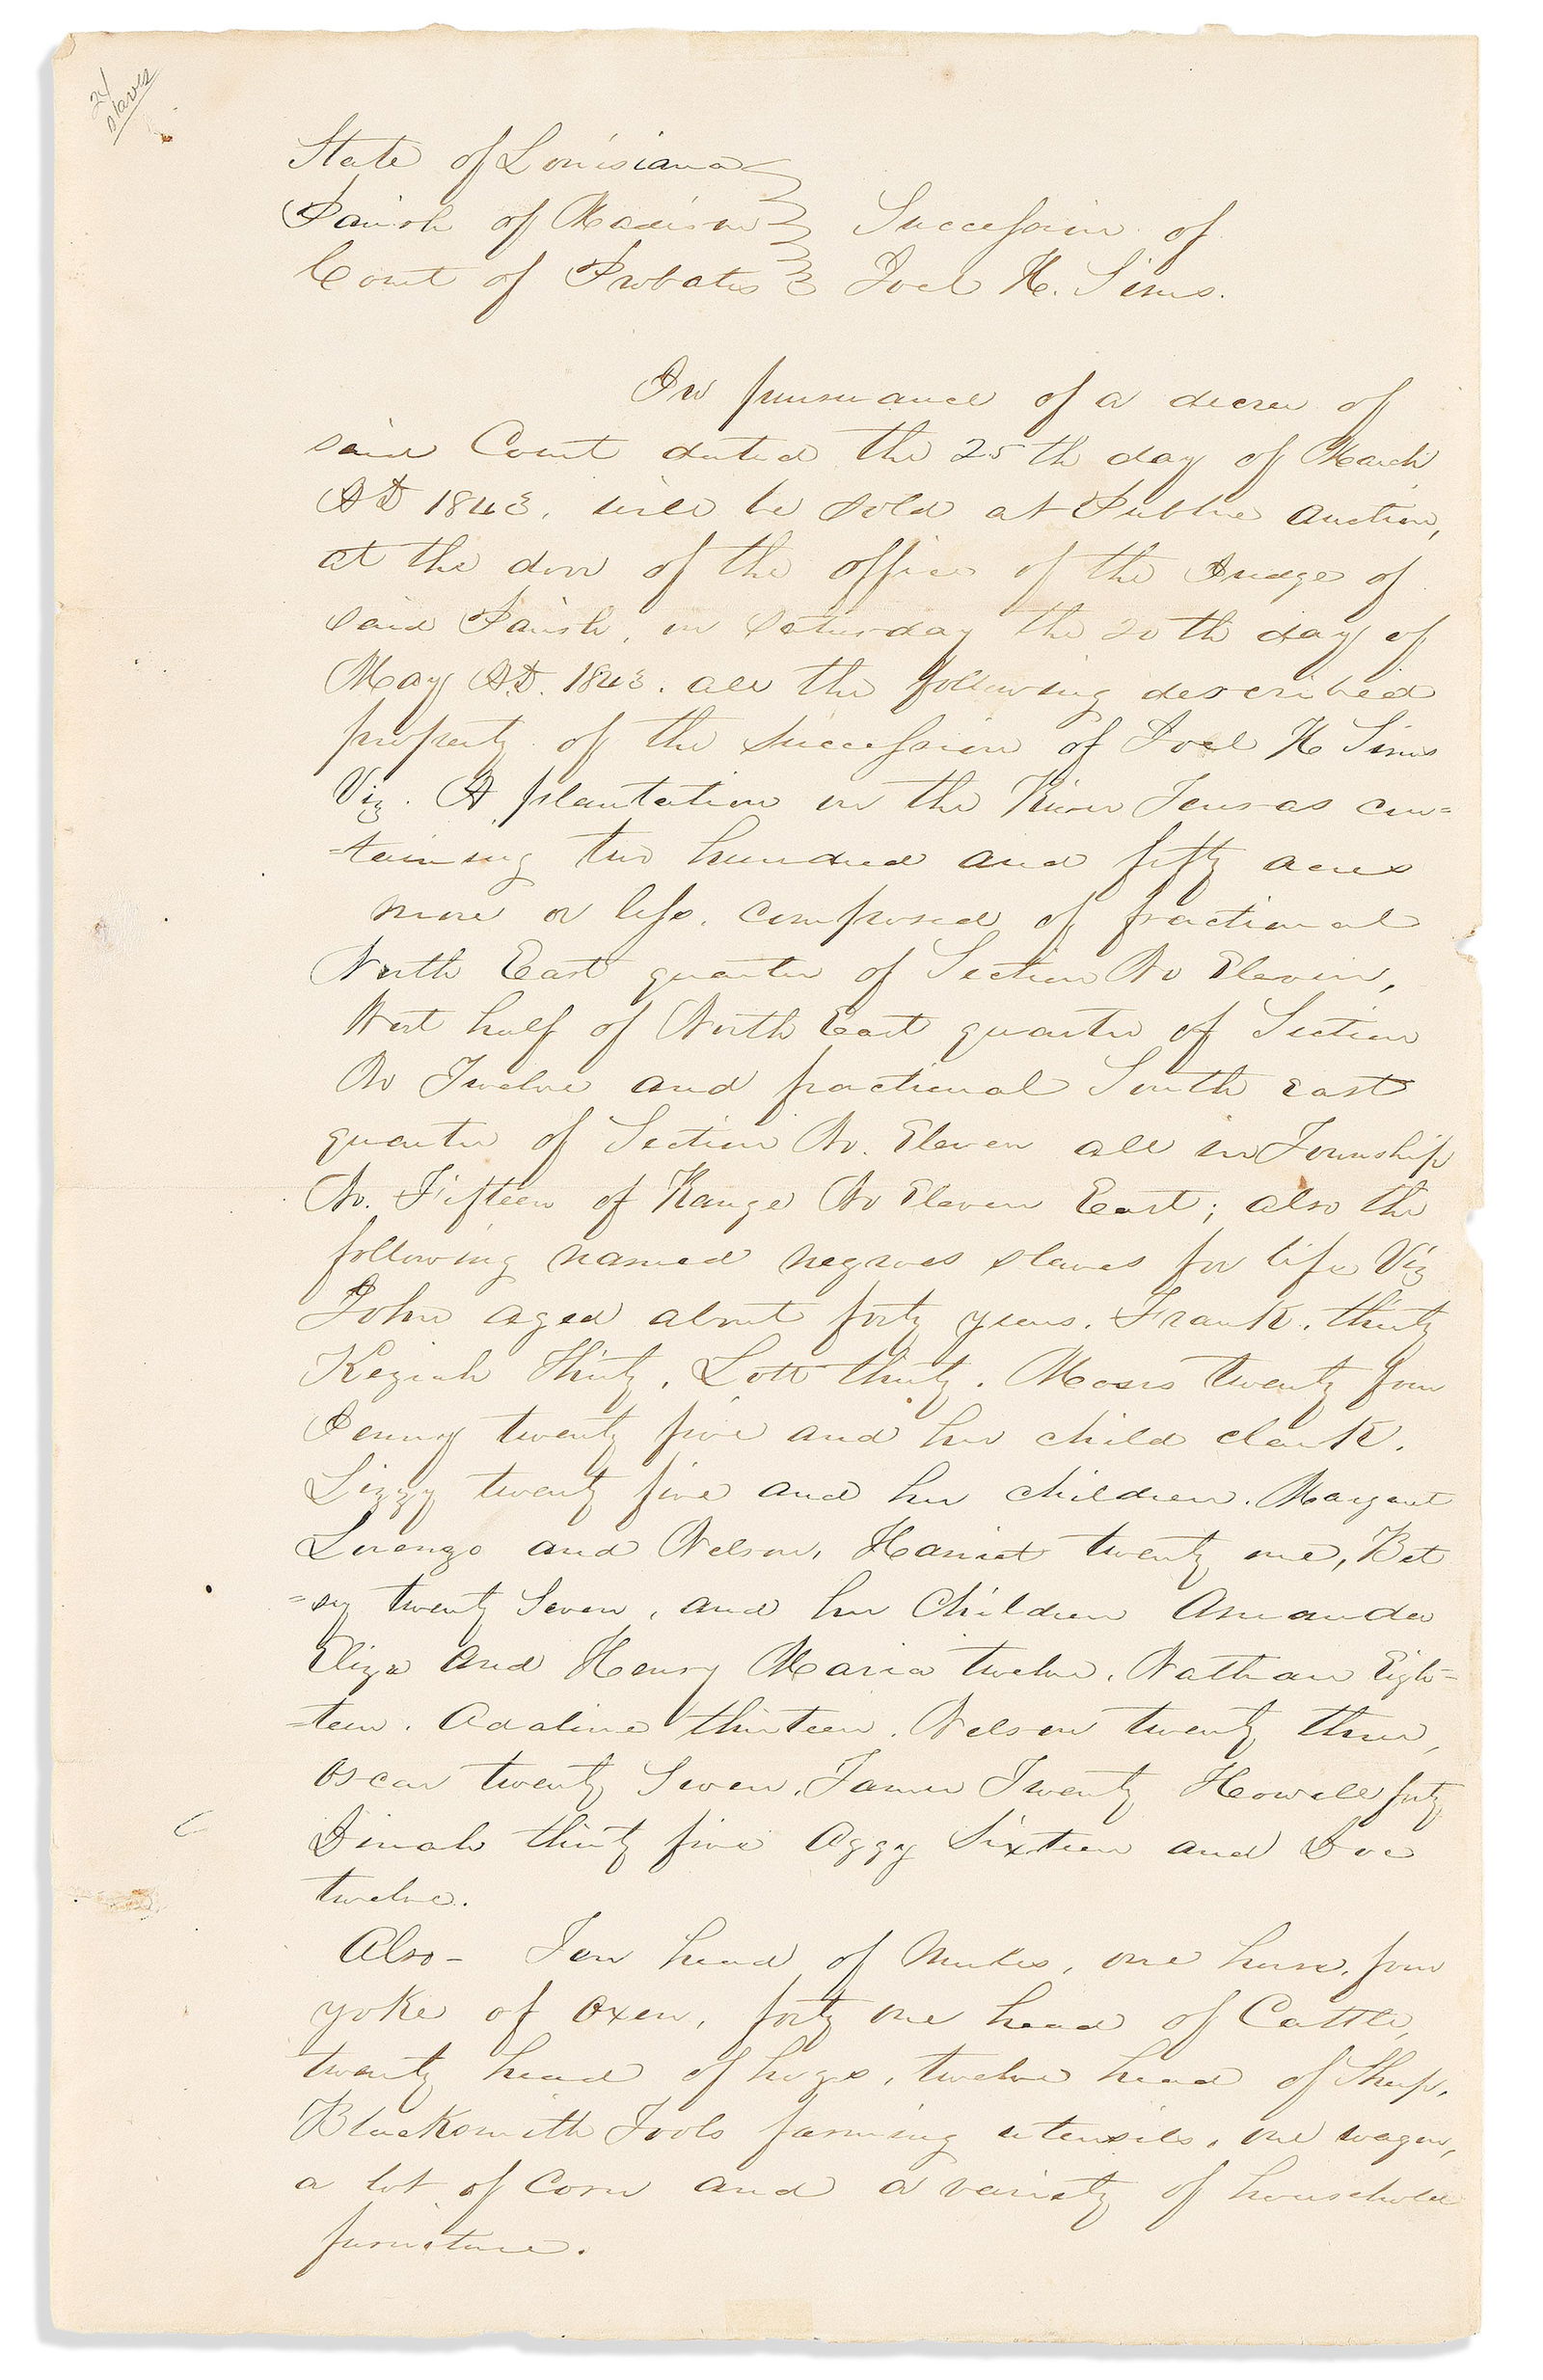 24
slaves
State of Louisiana
Parish of Madison Succession of
Court of Probates Joel K. Sims.
In pursuance of a decree of
said Court dated the 25th day of March
AD 1843. will be sold at Public auction,
at the door of the office of the Judge of
said Parish, on Saturday the 20th day of
May A.D. 1843. all the following described
property of the succession of Joel K Sims
Viz. A plantation on the River Tensas con=
=taining two hundred and fifty acres
more or less. composed of fractional
North East quarter of Section No Eleven,
West half of North East quarter of Section
No Twelve and fractional South east
quarter of Section No. Eleven all in Township
No. Fifteen of Range No Eleven East; also the
following named negroes slaves for life Viz
John aged about forty years. Frank. thirty
Keziah thirty, Lott thirty. Moses twenty four
Jenny twenty five and her child clark.
Lizzy twenty five and her children. Margaret
Lorenzo and Nelson, Harriet twenty one, Bet
=sy twenty Seven, and her Children Amanda
Eliza and Henry Maria twelve, Nathan Eigh=
=teen. Adaline thirteen. Nelson twenty three,
Oscar twenty Seven, James Twenty Howell forty
Dinah thirty five Aggy Sixteen and Doc
twelve.
Also - Ten head of Mules, one horse, four
yoke of Oxen, forty one head of Cattle,
twenty head of hogs, twelve head of Sheep,
Blacksmith Tools farming utensils, one wagon,
a lot of Corn and a variety of household
furniture.